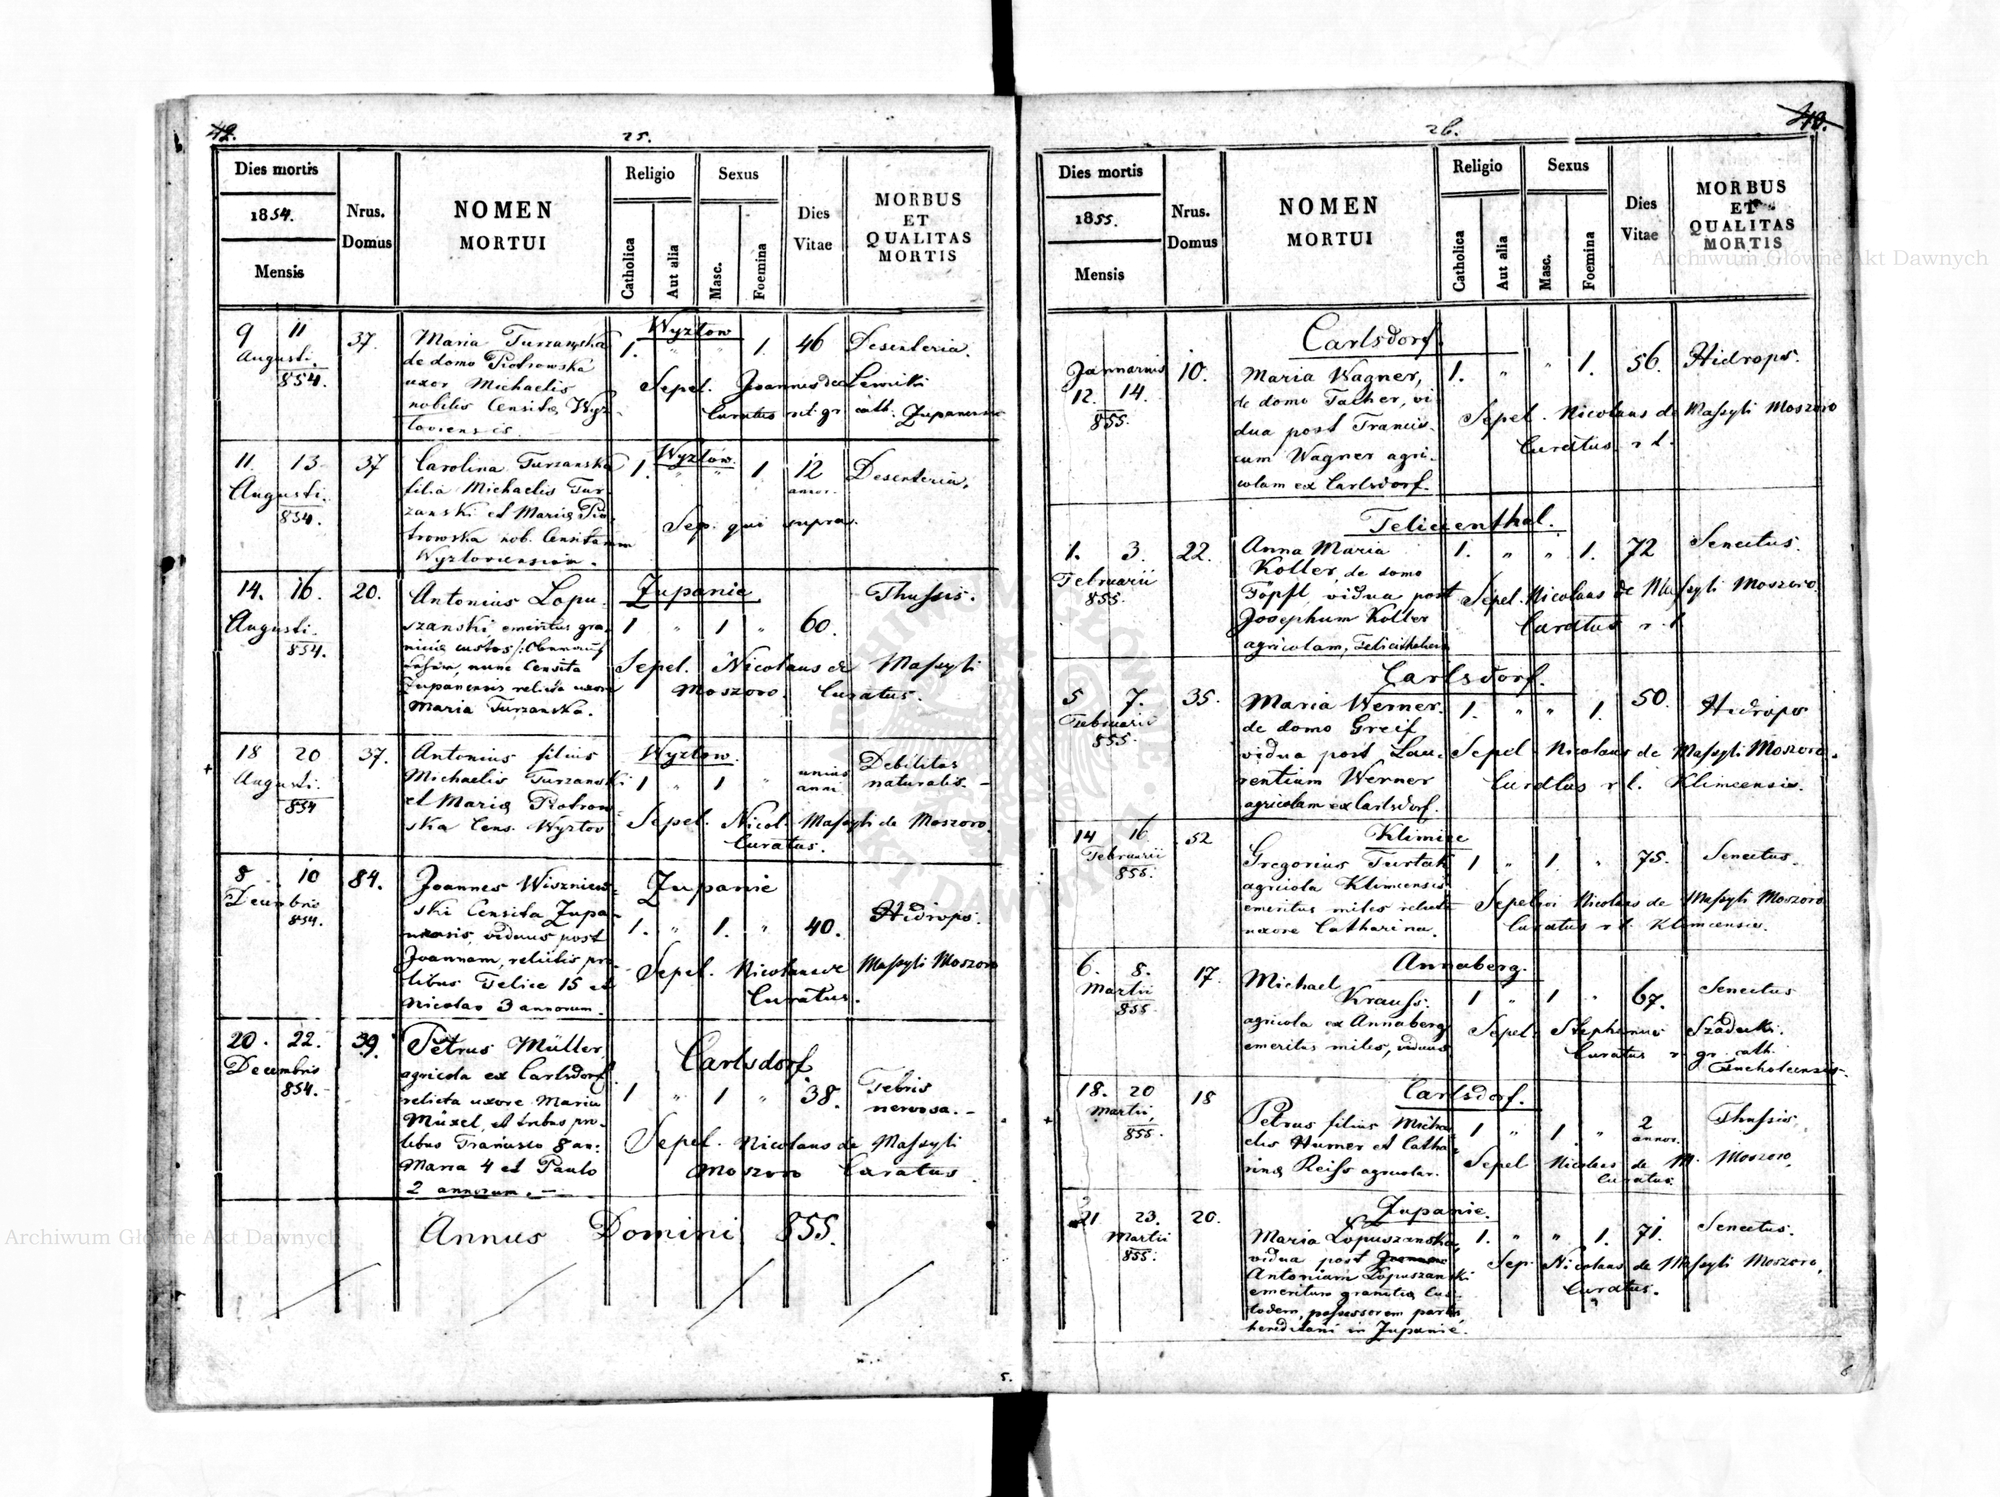 42.
25.
Dies mortis
1854.
Mensis
Nrus.
Domus
NOMEN
MORTUI
Religio
Catholica
Aut alia
Sexus
Masc.
Foemina
Dies
Vitae
MORBUS
ET
QUALITAS
MORTIS
9 11
Augusti.
854.
37.
Maria Turzanska
de domo Piotrowska
uxor Michaelis
nobilis Censitę Wyz-
loviensis.
Wyzlow
1. " " 1. 46 Desenteria.
Sepel. Joannes de
Curatus rit. gr. cath. Zupanensis
11. 13.
Augusti.
854.
37
Carolina Turzanska
filia Michaelis Tur-
zanski et Marię Pio-
trowska nob. Censitarum
Wyzloviensium.
Wyzlow
1. " " 1 12 Desenteria.
annor.
Sep. qui supra.
14. 16.
Augusti.
854.
20.
Antonius Lopu-
szanski, emeritus gra-
nicię custos
nunc Censita
Zupanensis relicta uxore
Maria Turzanska.
Zupanie
Thussis.
1 " 1 " 60.
Sepel. Nicolaus de Massyli
Moszoro. Curatus.
+
18 20
Augusti.
854
37.
Antonius filius
Michaelis Turzanski
et Marię Piotrow-
ska Cens. Wyzlov
Wyzlow.
1 " 1 " unius
anni.
Debilitas
naturalis. -
Sepel. Nicol. Massyli de Moszoro.
Curatus.
8 10
Decembris
854.
84.
Joannes Wiszniew-
ski Censita Zupa-
nensis, viduus post
Joannam, relictis pro-
libus Felice 15 et
Nicolao 3 annorum.
Zupanie
1. " 1. " 40. Hidrops.
Sepel. Nicolaus de Massyli Moszoro
Curatus.
20. 22.
Decembris
854. -
39.
Petrus Müller,
agricola ex Carlsdorf
relicta uxore Maria
Müxel, et tribus pro-
libus Francisco 8 an:
Maria 4 et Paulo
2 annorum. -
Carlsdorf
1 " 1 " 38. Febris
nervosa. -
Sepel. Nicolaus de Massyli
Moszoro Curatus.
Annus Domini 855.
5.
26.
43.
Dies mortis
1855.
Mensis
Nrus.
Domus
NOMEN
MORTUI
Religio
Catholica
Aut alia
Sexus
Masc.
Foemina
Dies
Vitae
MORBUS
ET
QUALITAS
MORTIS
Carlsdorf.
Januarius
12. 14.
855.
10.
Maria Wagner,
de domo Tacher, vi-
dua post Francis-
cum Wagner agri-
colam ex Carlsdorf.
1. " " 1. 56. Hidrops.
Sepel. Nicolaus de Massyli Moszoro
Curatus r. l.
Felicienthal.
1. 3.
Februarii
855.
22.
Anna Maria
Koller, de domo
Töpfl, vidua post
Josephum Koller
agricolam,
1. " " 1. 72 Senectus.
Sepel. Nicolaus de Massyli Moszoro
Curatus r. l
Carlsdorf.
5 7.
Februarii
855.
35.
Maria Werner.
de domo Greif
vidua post Lau-
rentium Werner
agricolam ex Carlsdorf.
1. " " 1. 50. Hidrops
Sepel. Nicolaus de Massyli Moszoro.
Curatus r. l. Klimcensis.
Klimiec
14 16.
Februarii
855.
52
Gregorius Turtak
agricola Klimcensis
emeritus miles relicta
uxore Catharina.
1 " 1. " 75. Senectus.
Sepelivi Nicolaus de Massyli Moszoro
Curatus r. l. Klimcensis.
Annaberg.
6. 8.
Martii
855
17
Michael
Krauss.
agricola ex Annaberg
emeritus miles, viduus
1 " 1 " 67. Senectus
Sepel. Stephanus
Curatus r. gr. cath.
Tucholcensis.
+
Carlsdorf.
18. 20
Martii,
855.
18
Petrus filius Micha-
elis Humer et Catha-
rinę Reiss agricolar.
1 " 1 " 2 Thussis,
annor.
Sepel Nicolaus de M. Moszoro,
Curatus.
Zupanie.
21 23.
Martii
855.
20.
Maria Lopuszanska,
vidua post
Antonium Lopuszanski
emeritum granicię Cus-
todem, possessorem partis
hereditarii in Zupanie.
1. " " 1. 71. Senectus.
Sep. Nicolaus de Massyli Moszoro,
Curatus.
6
Archiwum Główne Akt Dawnych
Archiwum Główne Akt Dawnych
ARCHIWUM GŁÓWNE AKT DAWNYCH